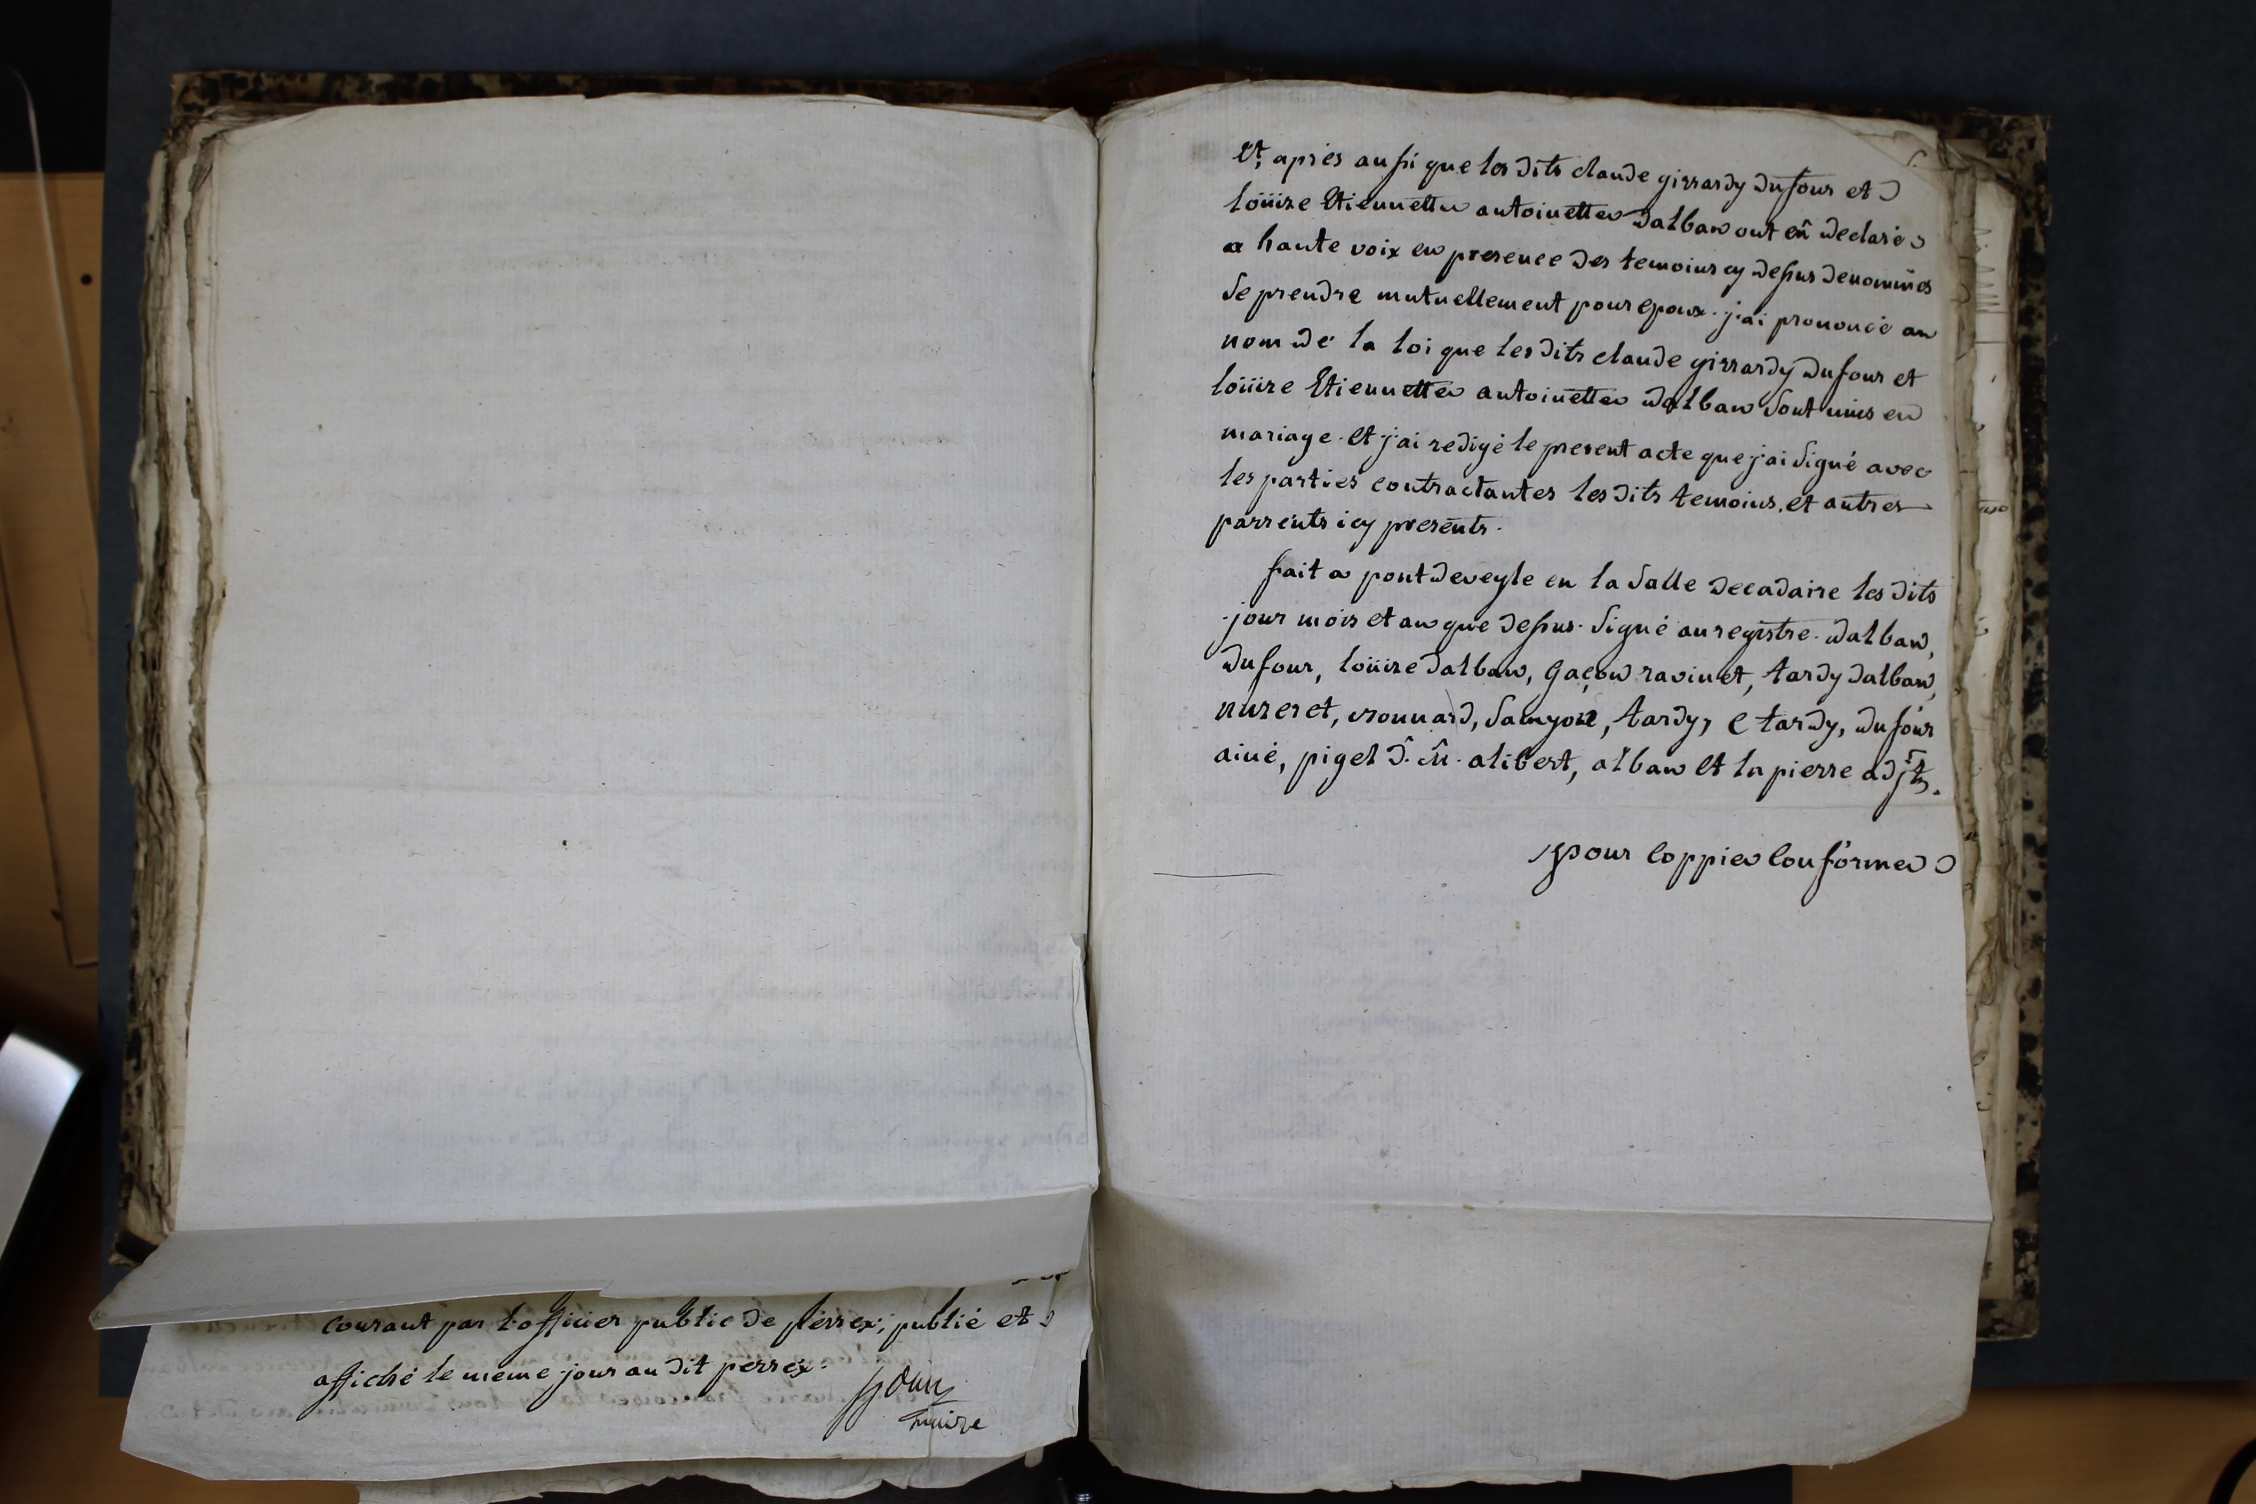 courant par l'officier public de perrex; publié et
affiché le meme jour au dit perrex.
maire
Et, aprés aussi que les dits claude girrardy dufour et
loüise Etiennette antoinette dalban ont eû declaré
a haute voix en presence des temoins cy dessus denommés
se prendre mutuellement pour epoux. j'ai prononcé au
nom de la loi que les dits claude girrardy dufour et
loüise Etiennette antoinette dalban sont unis en
mariage. et j'ai redigé le present acte que j'ai signé avec
les parties contractantes les dits temoins, et autres
parrents icy presents.
fait a pontdeveyle en la salle decadaire les dits
jour mois et an que dessus. signé au registre. dalban,
dufour, loüise dalban, gaçon ravinet, tardy dalban,
nuzeret, dalban, tardy, C tardy, dufour
ainé, alibert, alban et la pierre adjt.
pour coppie conforme